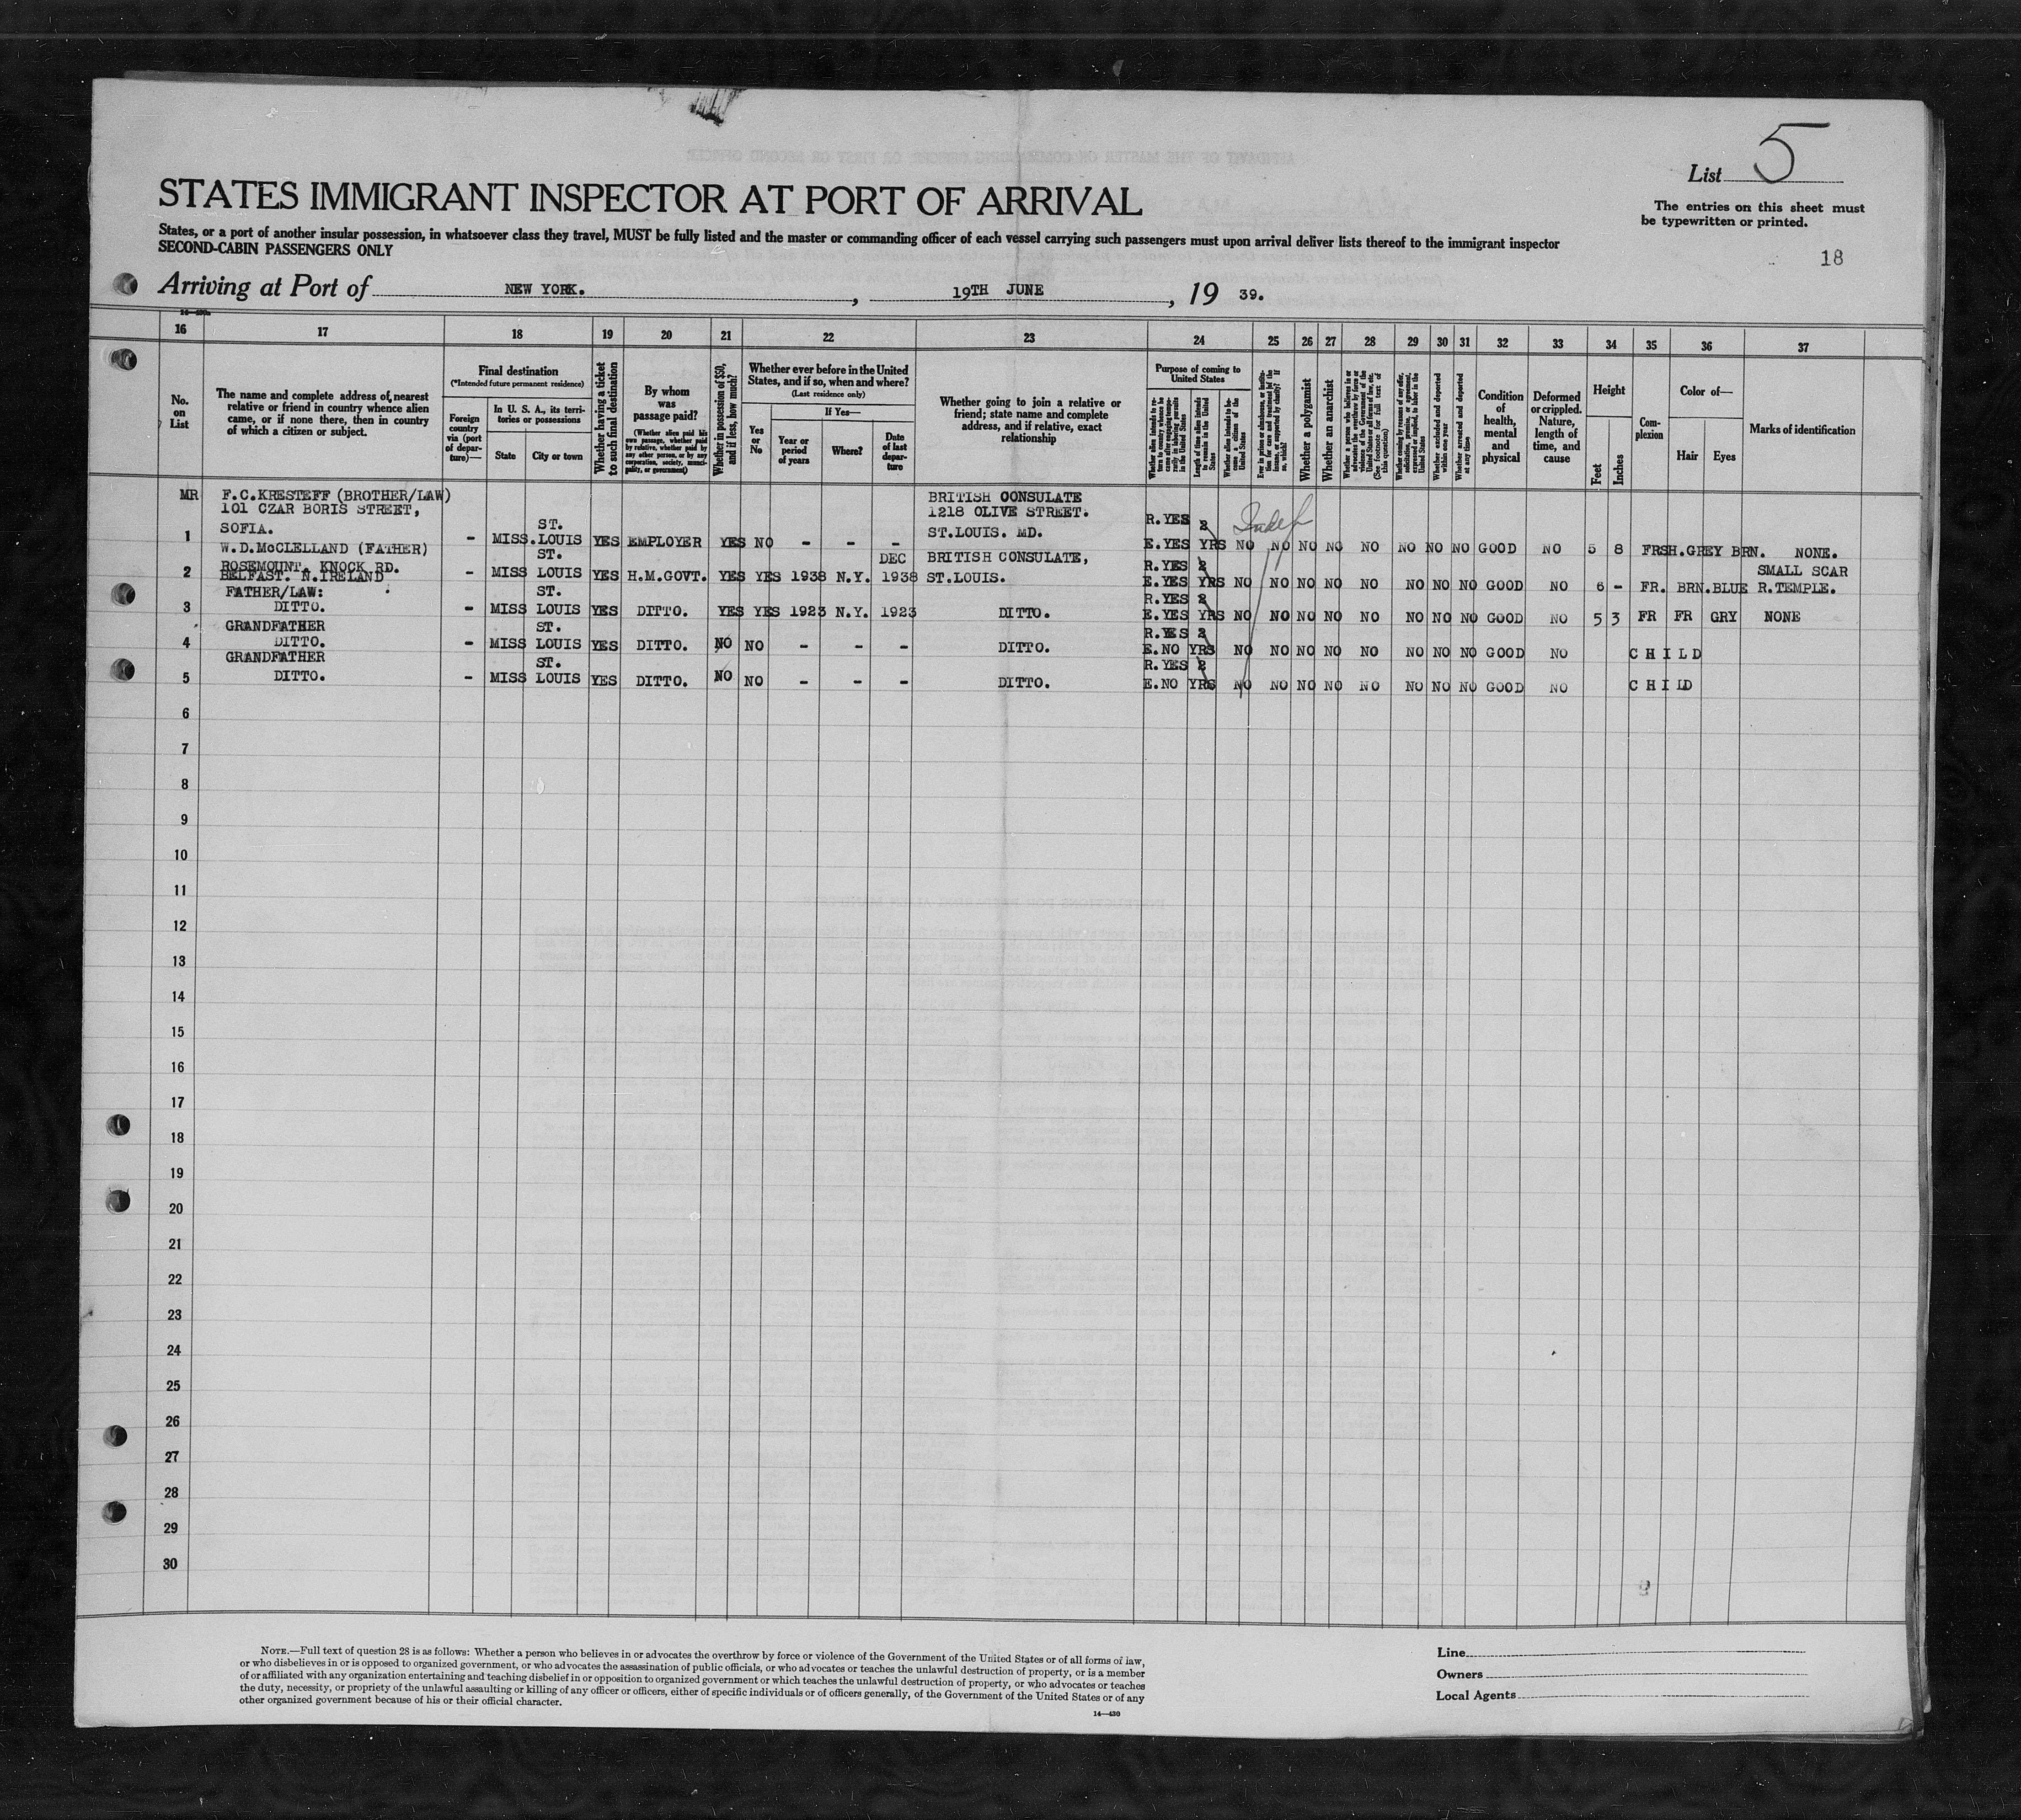 List 5
STATES IMMIGRANT INSPECTOR AT PORT OF ARRIVAL
The entries on this sheet must
be typewritten or printed.
States, or a port of another insular possession, in whatsoever class they travel, MUST be fully listed and the master or commanding officer of each vessel carrying such passengers must upon arrival deliver lists thereof to the immigrant inspector
SECOND-CABIN PASSENGERS ONLY
18
Arriving at Port of NEW YORK. , 19TH JUNE , 19 39.
16 17 18 19 20 21 22 23 24 25 26 27 28 29 30 31 32 33 34 35 36 37
No. on List
The name and complete address of nearest relative or friend in country whence alien came, or if none there, then in country of which a citizen or subject.
Final destination
(*Intended future permanent residence)
Foreign country via (port of departure)—
In U. S. A., its territories or possessions
State
City or town
Whether having a ticket to such final destination
By whom was passage paid?
(Whether alien paid his own passage, whether paid by relative, whether paid by any other person, or by any corporation, society, municipality, or government)
Whether in possession of $50, and if less, how much?
Whether ever before in the United States, and if so, when and where?
(Last residence only)
Yes or No
If Yes—
Year or period of years
Where?
Date of last departure
Whether going to join a relative or friend; state name and complete address, and if relative, exact relationship
Purpose of coming to United States
Length of time alien intends to remain in the United States
Whether alien intends to become a citizen of the United States
Whether a polygamist
Whether an anarchist
(See footnote for full text of this question)
Whether excluded and deported within one year
Whether arrested and deported at any time
Condition of health, mental and physical
Deformed or crippled. Nature, length of time, and cause
Height
Feet
Inches
Complexion
Color of—
Hair
Eyes
Marks of identification
MR F.C.KRESTEFF (BROTHER/LAW) BRITISH CONSULATE
101 CZAR BORIS STREET, 1218 OLIVE STREET.
SOFIA. ST. ST.LOUIS. MD. R.YES 2 Indef
1 - MISS. LOUIS YES EMPLOYER YES NO - - - E.YES YRS NO NO NO NO NO NO NO NO GOOD NO 5 8 FRSH. GREY BRN. NONE.
W.D.McCLELLAND (FATHER) ST. DEC BRITISH CONSULATE,
ROSEMOUNT. KNOCK RD. R.YES 2 SMALL SCAR
2 BELFAST. N.IRELAND - MISS LOUIS YES H.M.GOVT. YES YES 1938 N.Y. 1938 ST.LOUIS. E.YES YRS NO NO NO NO NO NO NO NO GOOD NO 6 - FR. BRN. BLUE R.TEMPLE.
FATHER/LAW: ST. R.YES 2
3 DITTO. - MISS LOUIS YES DITTO. YES YES 1923 N.Y. 1923 DITTO. E.YES YRS NO NO NO NO NO NO NO NO GOOD NO 5 3 FR FR GRY NONE
GRANDFATHER ST. R.YES 2
4 DITTO. - MISS LOUIS YES DITTO. NO NO - - - DITTO. E.NO YRS NO NO NO NO NO NO NO NO GOOD NO CHILD
GRANDFATHER ST. R.YES 2
5 DITTO. - MISS LOUIS YES DITTO. NO NO - - - DITTO. E.NO YRS NO NO NO NO NO NO NO NO GOOD NO CHILD
6
7
8
9
10
11
12
13
14
15
16
17
18
19
20
21
22
23
24
25
26
27
28
29
30
NOTE.—Full text of question 28 is as follows: Whether a person who believes in or advocates the overthrow by force or violence of the Government of the United States or of all forms of law,
or who disbelieves in or is opposed to organized government, or who advocates the assassination of public officials, or who advocates or teaches the unlawful destruction of property, or is a member
of or affiliated with any organization entertaining and teaching disbelief in or opposition to organized government or which teaches the unlawful destruction of property, or who advocates or teaches
the duty, necessity, or propriety of the unlawful assaulting or killing of any officer or officers, either of specific individuals or of officers generally, of the Government of the United States or of any
other organized government because of his or their official character.
14—430
Line
Owners
Local Agents